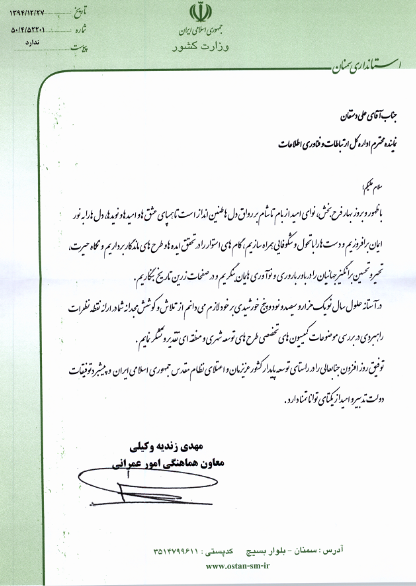 تاریخ ۱۳۹۴/۱۲/۲۷
شماره ۵۰/۴/۵۲۲۰۱
پیوست ندارد
جمهوری اسلامی ایران
وزارت کشور
استانداری سمنان
جناب آقای علی دستقان
نماینده محترم اداره کل ارتباطات و فناوری اطلاعات
سلام علیکم؛
با ظهور و بروز بهار فرح بخش، نوای امید از بام تا شام بر رواق دل ها طنین انداز است تا همپای عشق ها و امیدها و نویدها، دل ها را به نور
ایمان برافروزیم و دست ها را با تحول و شکوفایی همراه سازیم؛ گام های استوار را در تحقق ایده ها و طرح های ماندگار برداریم و نگاه حیرت،
تحیر و تحسین برانگیز جهانیان را در باور باروری و نوآوری هایمان بنگریم و در صفحات زرین تاریخ بنگاریم.
در آستانه حلول سال نو یک هزار و سیصد و نود و پنج خورشیدی بر خود لازم می دانم از تلاش و کوشش مجدانه شما در ارائه نقطه نظرات
راهبردی در بررسی موضوعات کمیسیون های تخصصی طرح های توسعه شهری و منطقه ای تقدیر و تشکر نمایم.
توفیق روز افزون جنابعالی را در راستای توسعه پایدار کشور عزیزمان و اعتلای نظام مقدس جمهوری اسلامی ایران و پیشبرد توفیقات
دولت تدبیر و امید از یکتای توانا تمنا دارد.
مهدی زندیه وکیلی
معاون هماهنگی امور عمرانی
آدرس : سمنان - بلوار بسیج کدپستی : ۳۵۱۴۷۹۹۶۱۱
www.ostan-sm-ir